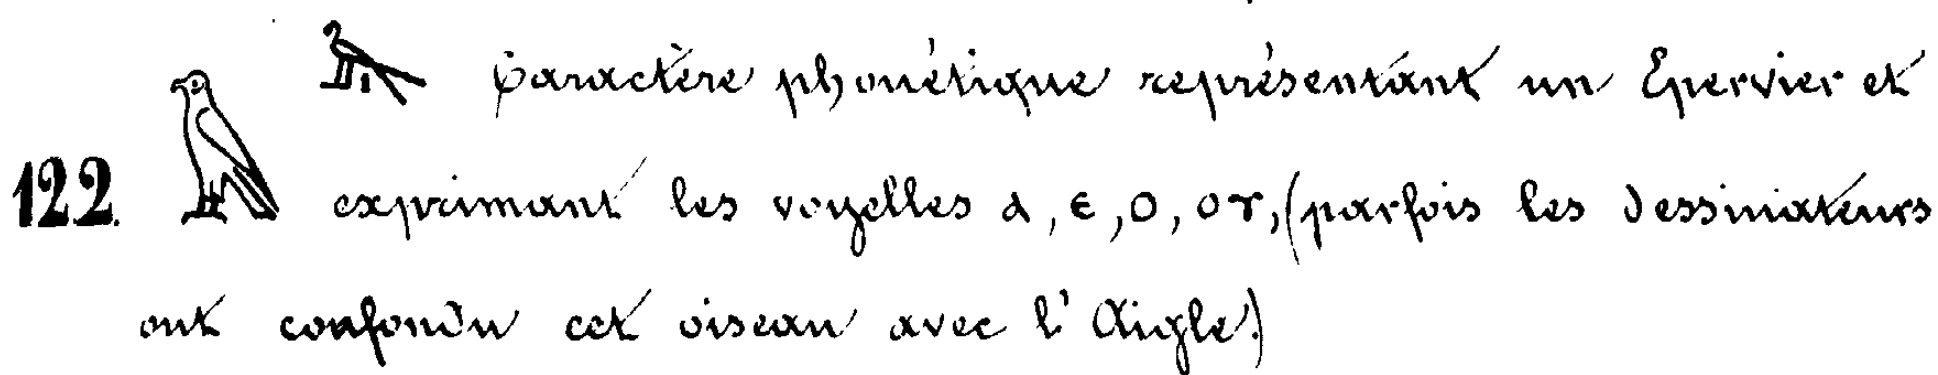 Caractère phonétique représentant un Epervier et
122. exprimant les voyelles ⲁ, ⲉ, ⲟ, ⲟⲩ, (parfois les dessinateurs
ont confondu cet oiseau avec l'Aigle.)